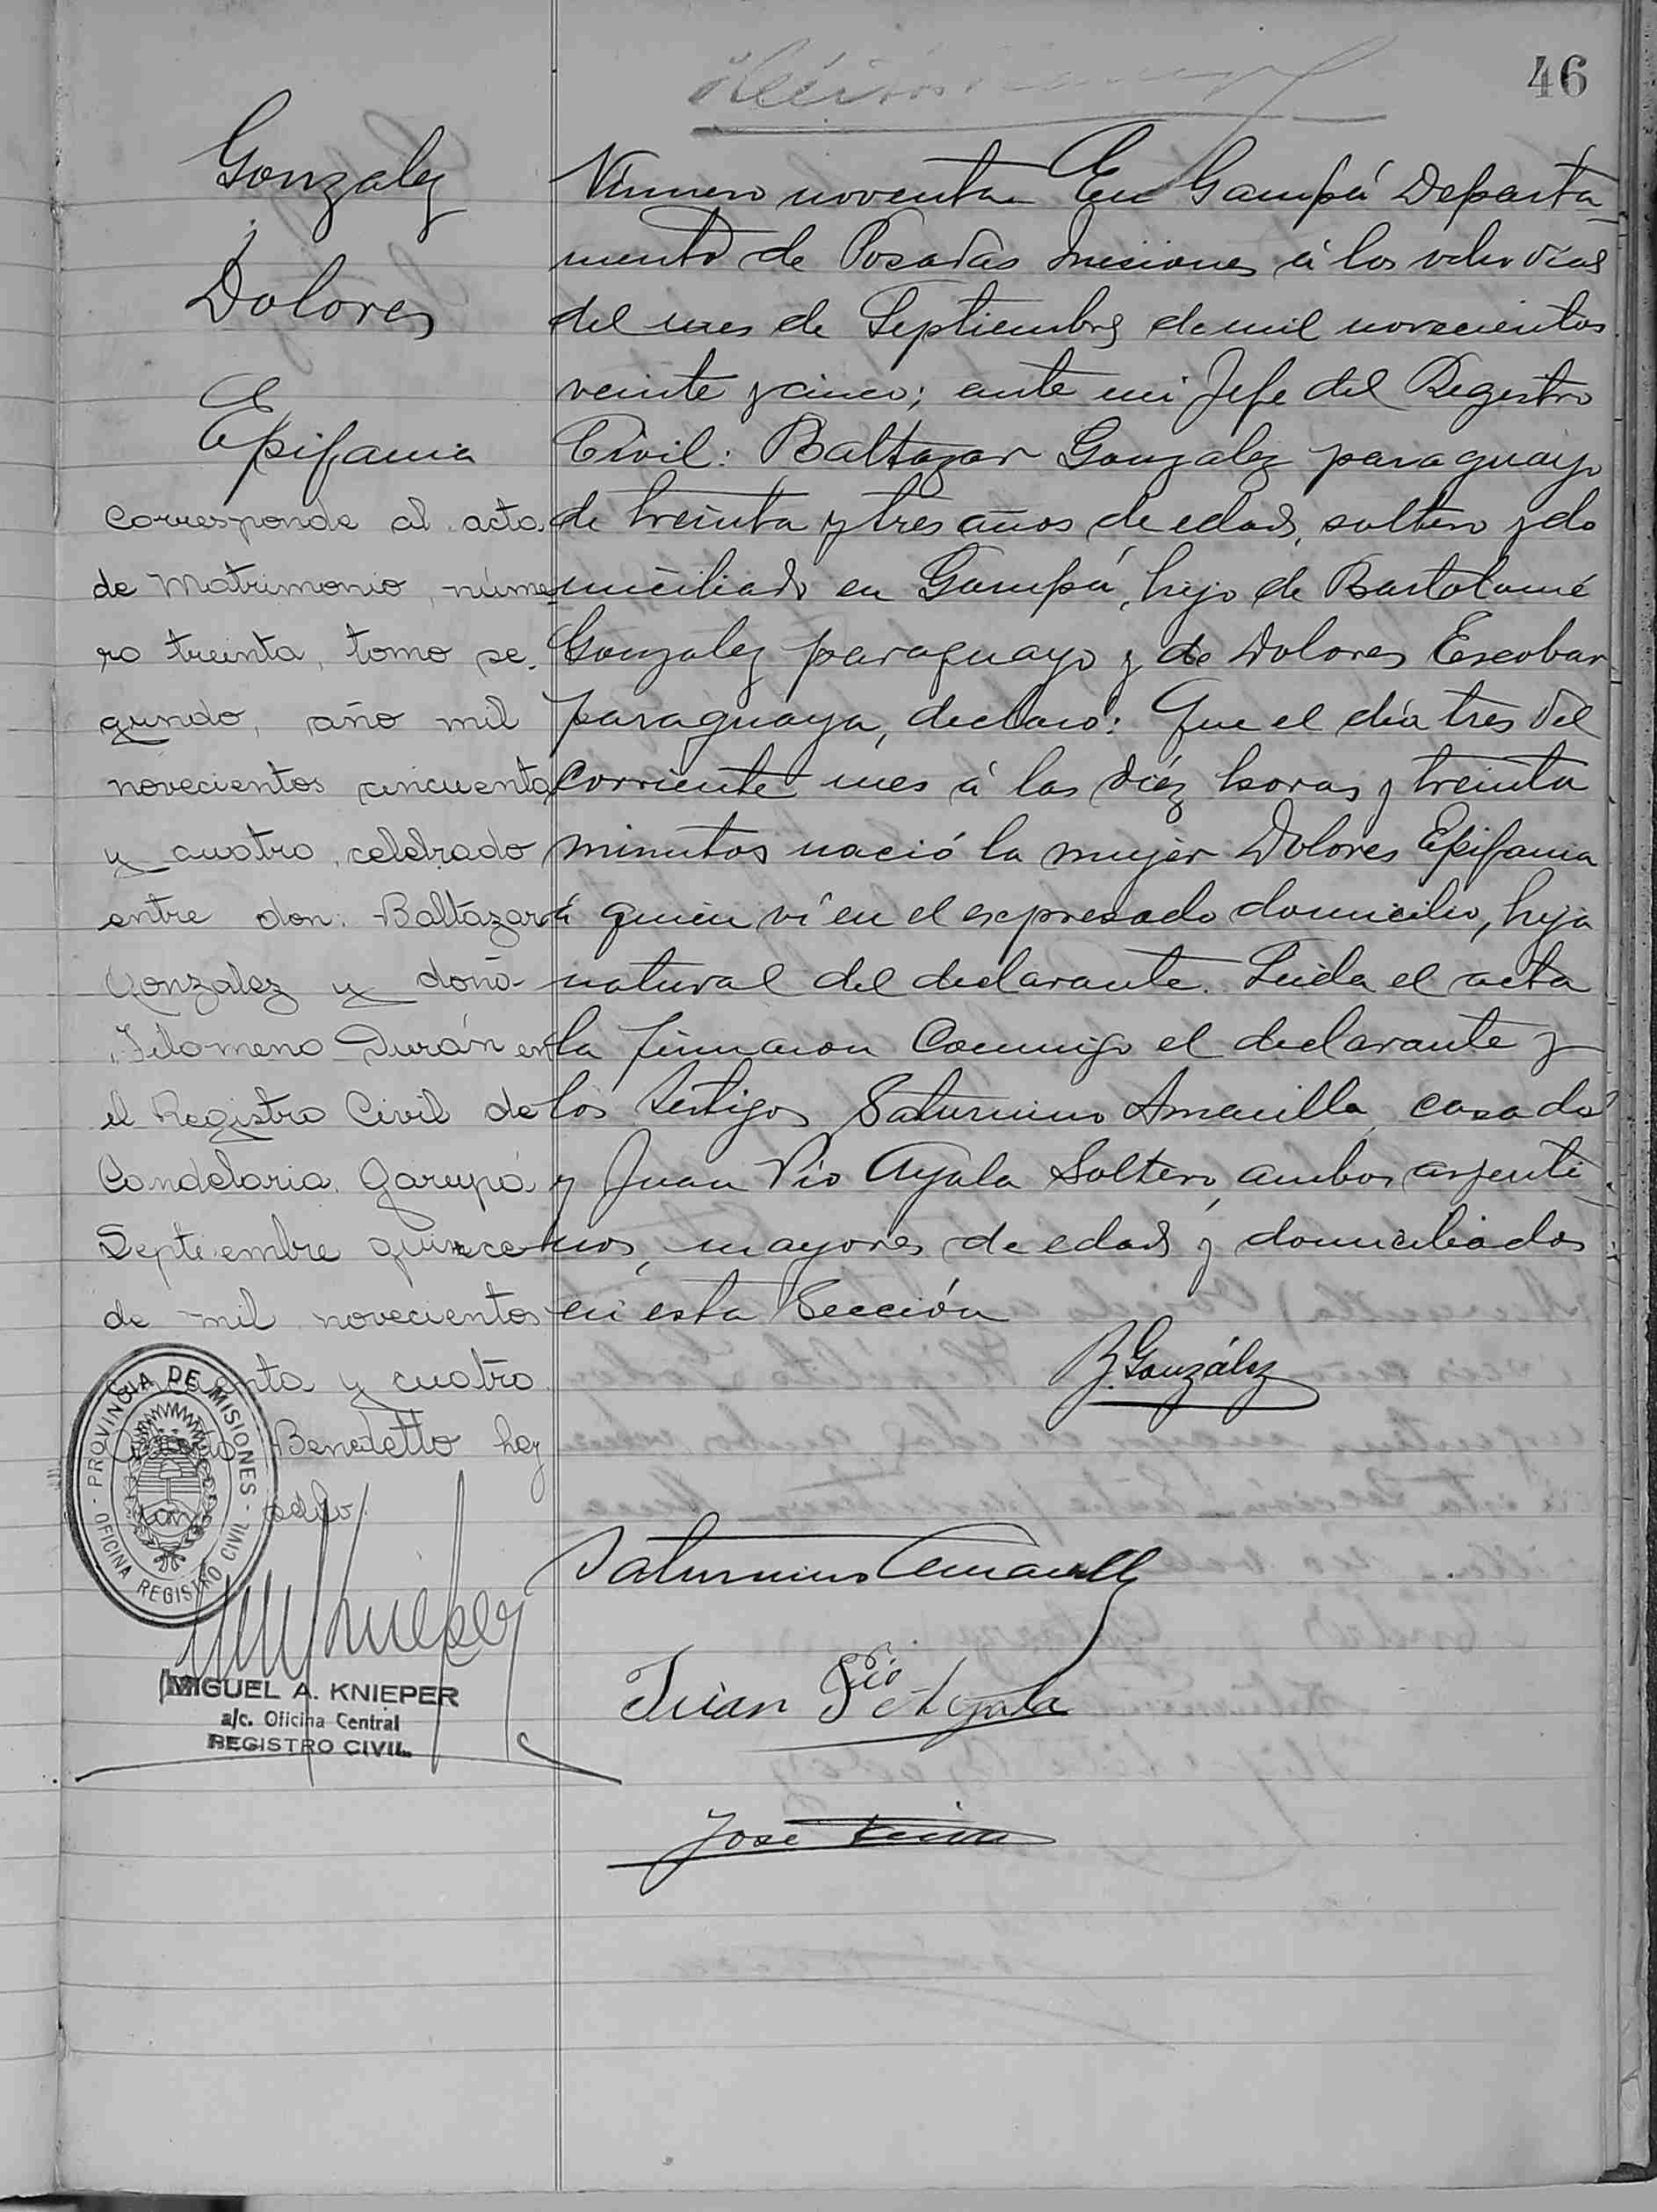 46
Gonzalez
Dolores
Epifania
Corresponde al acta
de Matrimonio, núme-
ro treinta, tomo se-
gundo, año mil
novecientos cincuenta
y cuatro, celebrado
entre don: Baltázar
Gonzalez y doña
Filomena Durán en
el Registro Civil de
Candelaria. Garupá
Septiembre quince
de mil novecientos
y cuatro.
Benedetto hay
PROVINCIA DE MISIONES
OFICINA REGISTRO CIVIL
MIGUEL A. KNIEPER
a/c. Oficina Central
REGISTRO CIVIL
Número noventa En Garupá Departa-
mento de Posadas Misiones á los ocho dias
del mes de Septiembre de mil novecientos
veinte y cinco; ante mi Jefe del Registro
Civil: Baltazar Gonzalez paraguayo
de treinta y tres años de edad, soltero y do
miciliado en Garupá, hijo de Bartolomé
Gonzalez paraguayo y de Dolores Escobar
paraguaya, declaró: Que el día tres del
corriente mes á las diéz horas y treinta
minutos nació la mujer Dolores Epifania
á quien ví en el expresado domicilio, hija
natural del declarante. Leida el acta
la firmaron Conmigo el declarante y
los testigos Saturnino Amarilla, casado
y Juan Pio Ayala Soltero, ambos argenti-
nos, mayores de edad y domiciliados
en esta Sección
B. González
Saturnino Amarilla
Juan Pio Ayala
José